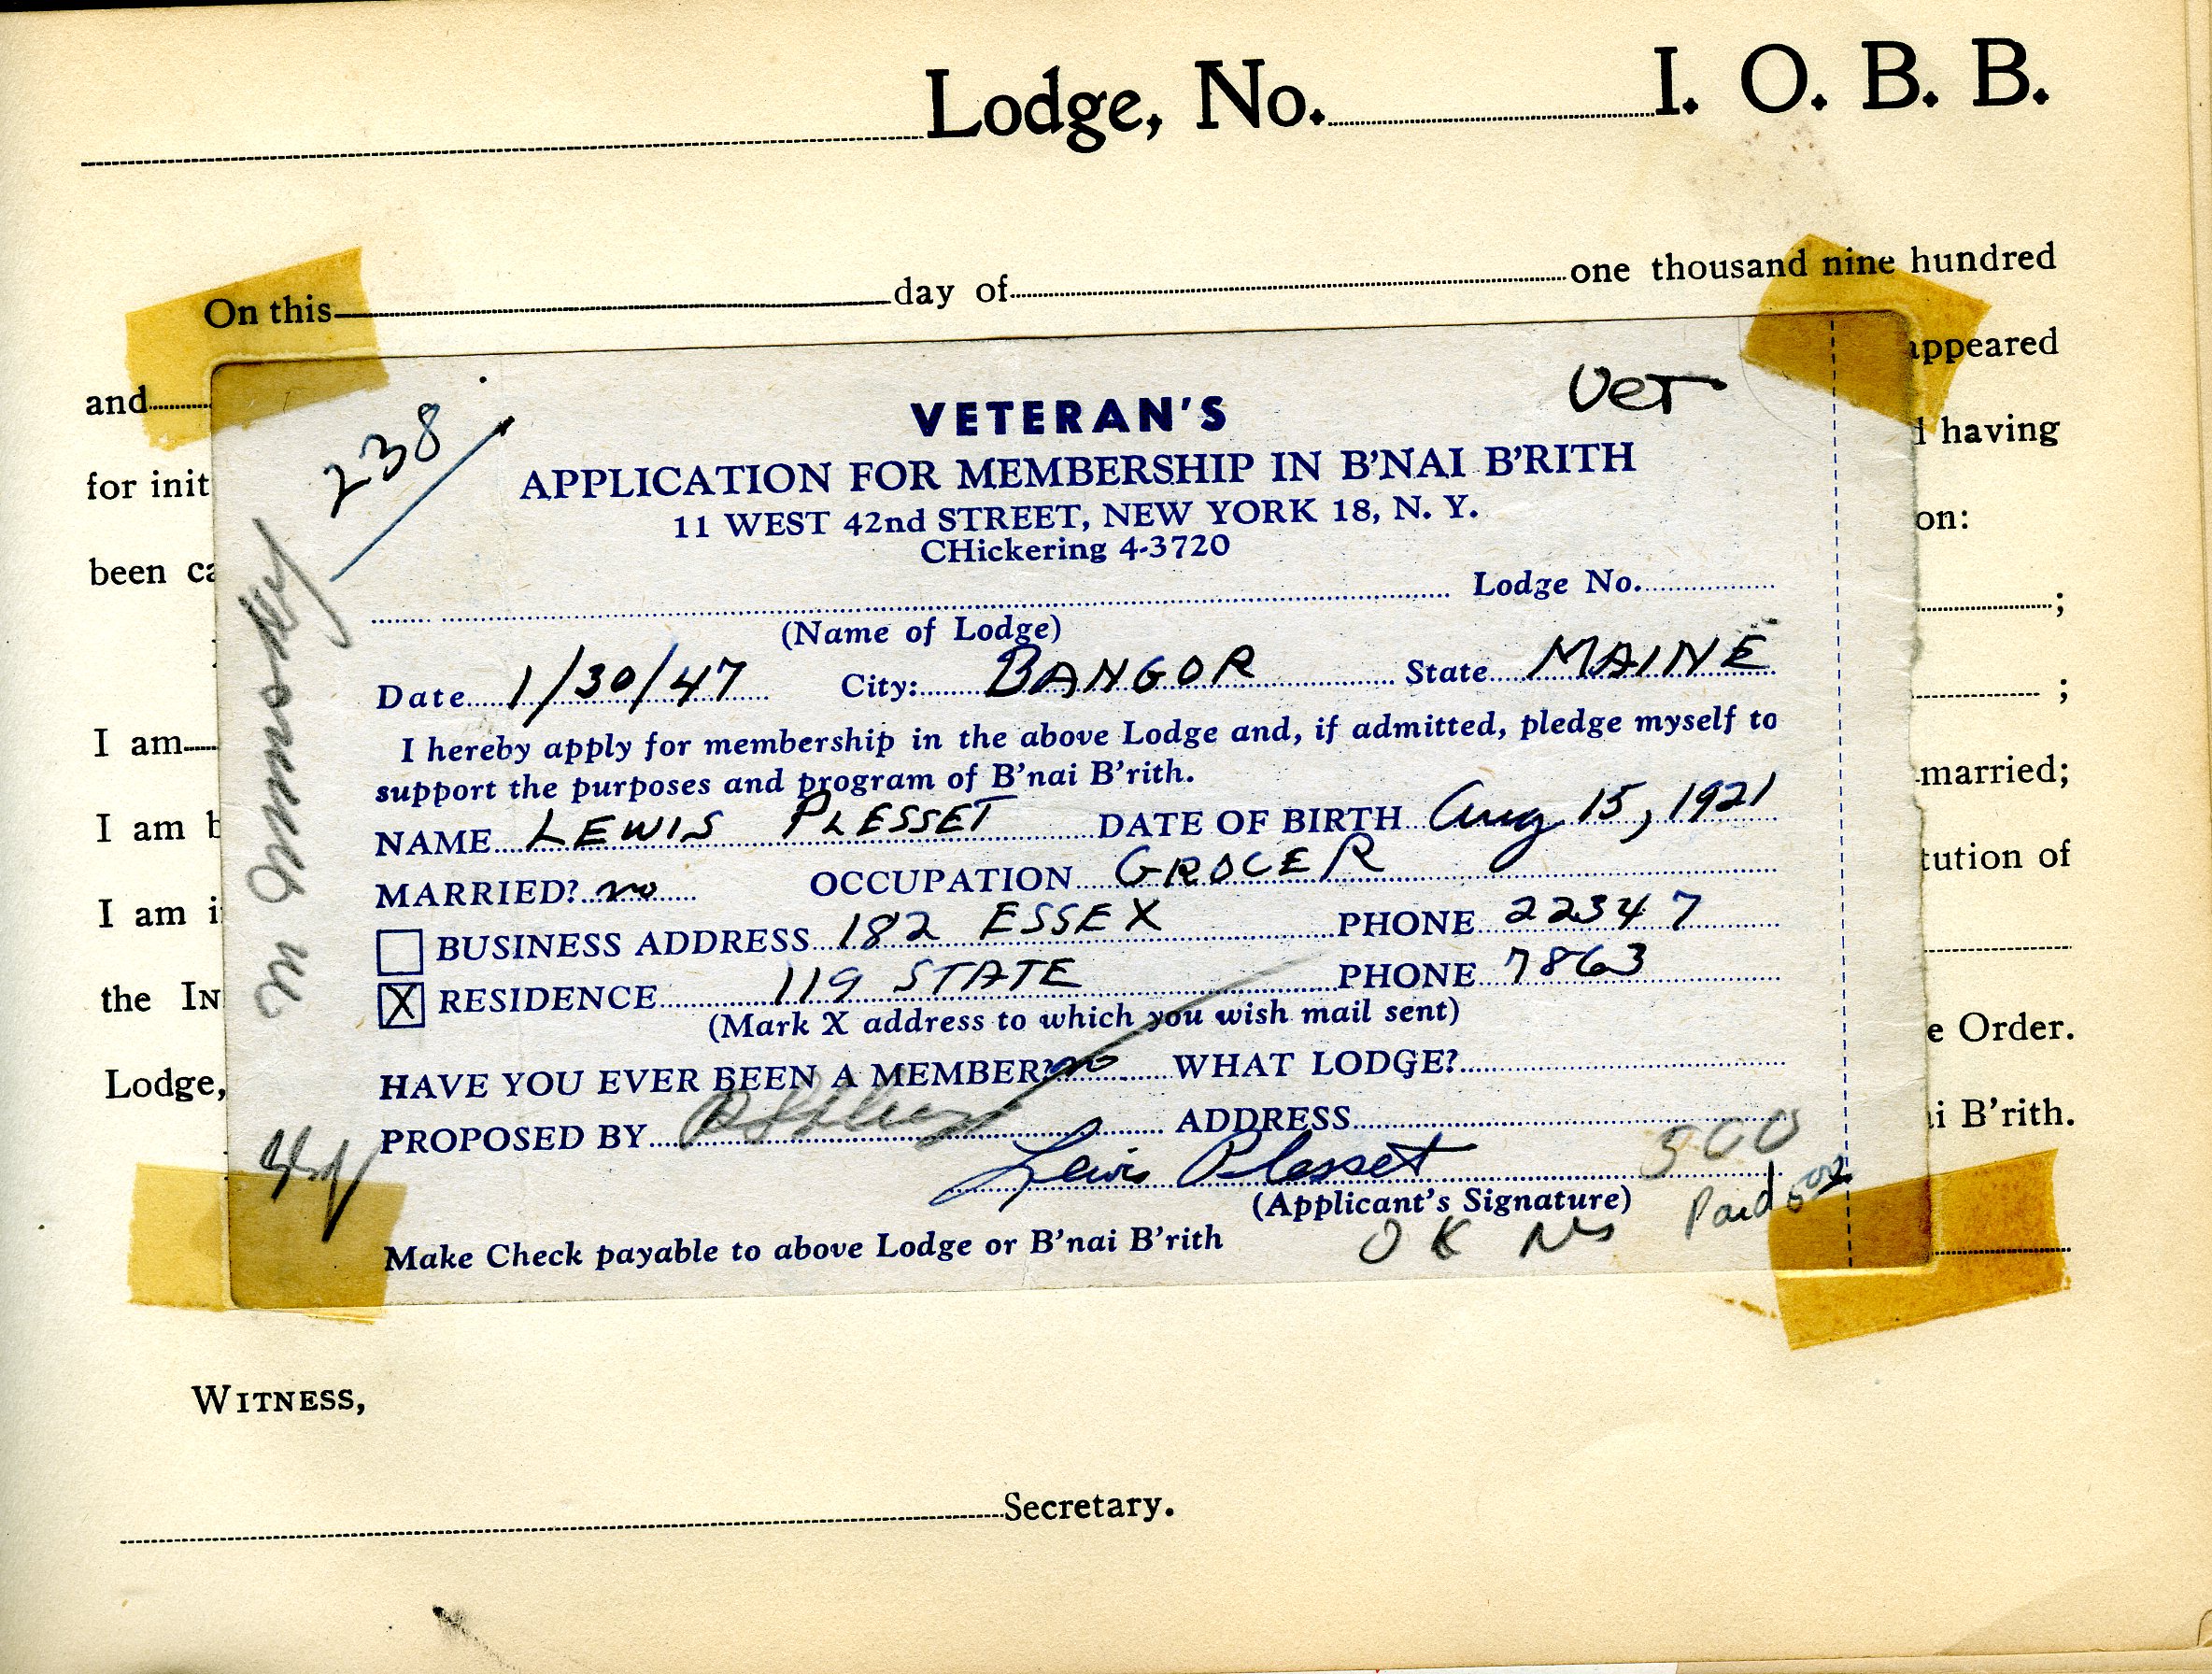 Lodge, No. I. O. B. B.
On this day of one thousand nine hundred
and appeared
having
for init
on:
been ca
;
;
I am married;
I am b
tution of
I am i
the IN
e Order.
Lodge,
i B'rith.
238
Vet
VETERAN'S
APPLICATION FOR MEMBERSHIP IN B'NAI B'RITH
11 WEST 42nd STREET, NEW YORK 18, N. Y.
CHickering 4-3720
Lodge No.
(Name of Lodge)
Date 1/30/47 City: BANGOR State MAINE
I hereby apply for membership in the above Lodge and, if admitted, pledge myself to
support the purposes and program of B'nai B'rith.
NAME LEWIS PLESSET DATE OF BIRTH Aug 15, 1921
MARRIED? no OCCUPATION GROCER
BUSINESS ADDRESS 182 ESSEX PHONE 22347
X RESIDENCE 119 STATE PHONE 7863
(Mark X address to which you wish mail sent)
HAVE YOU EVER BEEN A MEMBER? no WHAT LODGE?
PROPOSED BY ADDRESS
Lewis Plesset 500
(Applicant's Signature) Paid
OK
Make Check payable to above Lodge or B'nai B'rith
WITNESS,
Secretary.